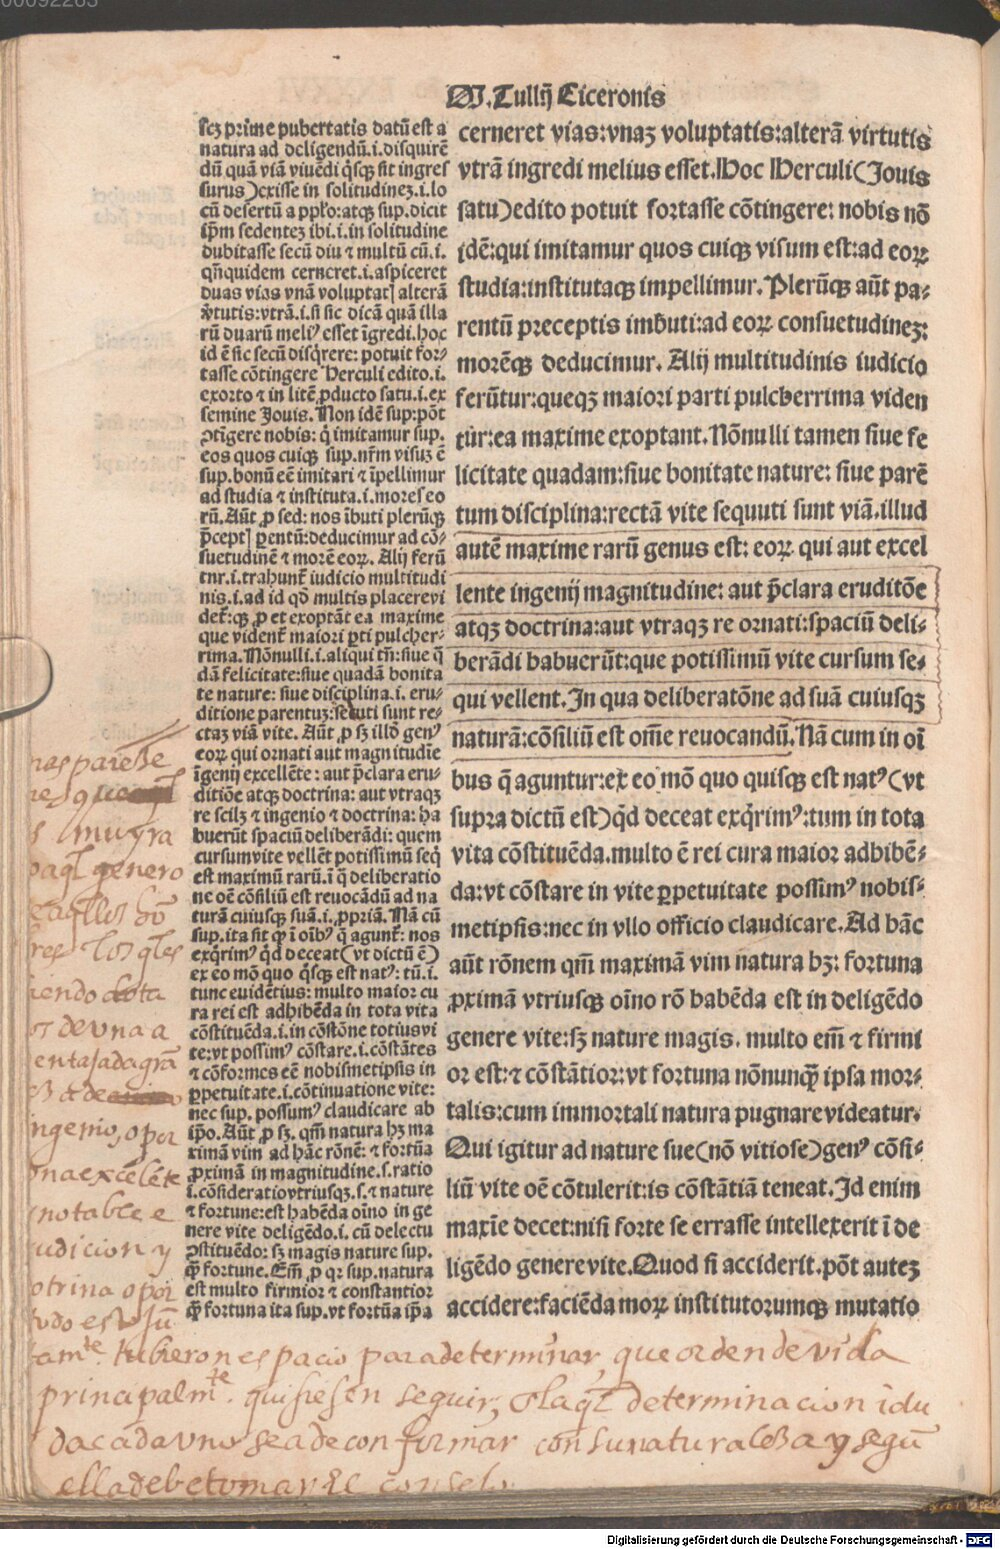 00092283
M. Tullij Ciceronis
sez prime pubertatis datū est a
natura ad deligendū.i.disquirē
dū quā viā viuēdi q̄sq̄ sit ingres
surus)exisse in solitudinez.i.lo
cū desertū a pplo:atq̄ sup.dicit
ip̄m sedentez ibi.i.in solitudine
dubitasse secū diu ⁊ multū cū.i.
qn̄quidem cerneret.i.aspiceret
duas vias vnā voluptat] alterā
v̄tutis:vtrā.i.si sic dicā quā illa
rū duarū meliꝰ esset īgredi.hoc
id ē sic secū disq̄rere: potuit for-
tasse cōtingere Herculi edito.i.
exorto ⁊ in litē ꝓducto satu.i.ex
semine Jouis. Non idē sup:pōt
ꝯtīgere nobis: q̇ imitamur sup.
eos quos cuiq̄ sup.nr̄m visuz ē
sup.bonū eē imitari ⁊ īpellimur
ad studia ⁊ instituta.i.mores eo
rū. Aūt ꝓ sed: nos ībuti plerūq̄
p̄cept] parentū:deducimur ad cō-
suetudinē ⁊ morē eoꝝ. Alij ferū
tur.i.trahunt̄ iudicio multitudi
nis.i.ad id qd̄ multis placere vi
det̄:q̄ ꝓ et exoptāt ea maxime
que vident̄ maiori ꝑti pulcher-
rima. Nōnulli.i.aliqui tn̄:siue q̄
dā felicitate:siue quadā bonita
te nature: siue disciplina.i. eru-
ditione parentuz:secuti sunt re-
ctaz viā vite. Aūt ꝓ sz illd̄ genꝰ
eoꝝ qui ornati aut magnitudīe
īgenij excellēte: aut p̄clara eru-
ditiōe atq̄ doctrina: aut vtraqz
re scilz ⁊ ingenio ⁊ doctrina: ha
buerūt spaciū deliberādi: quem
cursum vite vellēt potissimū seq̄
est maximū rarū.i q̄ deliberatio
ne oē cōsiliū est reuocādū ad na
turā cuiusq̄ suā.i.ꝓpriā. Nā cū
sup.ita sit q̄ ī oībꝰ q̄ agunt̄: nos
exq̄rimꝰ qd̄ deceat (vt dictū ē)
ex eo mō quo q̄sq̄ est natꝰ: tū.i.
tunc euidētius: multo maior cu
ra rei est adhibēda in tota vita
cōstituēda.i.in cōstōne totius vi
te:vt possimꝰ cōstare.i.cōstātes
⁊ cōformes eē nobismetipsis in
ꝑpetuitate.i.cōtinuatione vite:
nec sup. possumꝰ claudicare ab
ip̄o. Aūt ꝓ sz. qm̄ natura hz ma
ximā vim ad hāc rōnē: ⁊ fortūa
ꝓximā in magnitudine.s.ratio
.i.cōsideratio vtriusqz.s.⁊ nature
⁊ fortune:est habēda oīno in ge
nere vite deligēdo.i. cū delectu
ꝯstituēdo: sz magis nature sup.
q̄ fortune. Em̄ ꝓ qꝛ sup.natura
est multo firmior ⁊ constantior
q̄ fortuna ita sup.vt fortūa ip̄a
cerneret vias:vnaz voluptatis:alterā virtutis
vtrā ingredi melius esset. Hoc Herculi (Jouis
satu)edito potuit fortasse cōtingere: nobis nō
idē:qui imitamur quos cuiq̄ visum est:ad eoꝝ
studia:institutaq̄ impellimur. Plerūq̄ aūt pa-
rentū preceptis imbuti:ad eoꝝ consuetudinez:
morēq̄ deducimur. Alij multitudinis iudicio
ferūtur:queqz maiori parti pulcherrima viden
tur:ea maxime exoptant. Nōnulli tamen siue fe
licitate quadam:siue bonitate nature: siue parē
tum disciplina:rectā vite sequuti sunt viā.illud
autē maxime rarū genus est: eoꝝ qui aut excel
lente ingenij magnitudine: aut p̄clara eruditōe
atqz doctrina:aut vtraqz re ornati:spaciū deli-
berādi habuerūt:que potissimū vite cursum se-
qui vellent. In qua deliberatōne ad suā cuiusqz
naturā:cōsiliū est om̄e reuocandū. Nā cum in oī
bus q̄ aguntur:ex eo mō quo quisq̄ est natꝰ (vt
supra dictū est)qd̄ deceat exq̄rimꝰ:tum in tota
vita cōstituēda.multo ē rei cura maior adhibē-
da:vt cōstare in vite ꝑpetuitate possimꝰ nobis-
metipsis:nec in vllo officio claudicare. Ad hāc
aūt rōnem qm̄ maximā vim natura hz: fortuna
ꝓximā vtriusq̄ oīno rō habēda est in deligēdo
genere vite:sz nature magis. multo em̄ ⁊ firmi
or est:⁊ cōstātior:vt fortuna nōnunq̄ ipsa mor-
talis:cum immortali natura pugnare videatur.
Qui igitur ad nature sue(nō vitiose)genꝰ cōsi-
liū vite oē cōtulerit:is cōstātiā teneat. Id enim
maxīe decet:nisi forte se errasse intellexerit ī de
ligēdo genere vite. Quod si acciderit.pōt autez
accidere:faciēda moꝝ institutorumq̄ mutatio
mas pareśe
muy ra
genero
aq̄llos hō
bres los q̄les
siendo dota
os de vna a
uentajada grā
ingenio, o por
vna excelēte
notable e
rudicion y
otrina o por
todo esto jū
tamte. tubieron espacio para determinar, que orden de vida
principalmte. quisiesen seguir, En laq̄l determinacion idu
da cada vno se a de conformar con su naturaleza y segū
ella debe tomar el consejo.
Digitalisierung gefördert durch die Deutsche Forschungsgemeinschaft - DFG